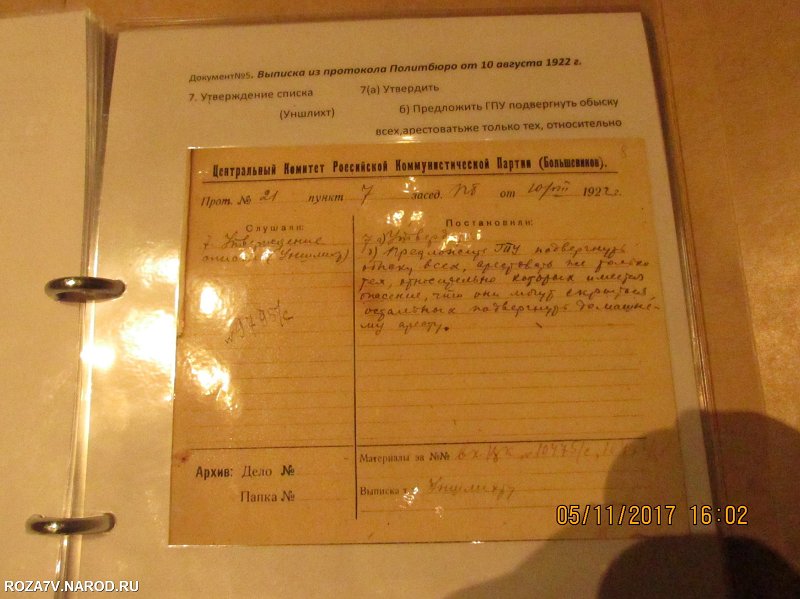 Документ№5. Выписка из протокола Политбюро от 10 августа 1922 г.
7. Утверждение списка 7(а) Утвердить
(Уншлихт) б) Предложить ГПУ подвергнуть обыску
всех,арестоватьже только тех, относительно
8
Центральный Комитет Российской Коммунистической Партии (Большевиков).
Прот. № 21 пункт 7 засед. ПБ от 10/VIII 1922 г.
Слушали:
7 Утверждение
списка (Уншлихт)
Постановили:
7 а) Утвердить
б) Предложить ГПУ подвергнуть
обыску всех, арестовать же только
тех, относительно которых имеется
опасение, что они могут скрыться,
остальных подвергнуть домашне-
му аресту.
Архив: Дело №
Папка №
Материалы за №№
Выписка т. Уншлихту
05/11/2017 16:02
ROZA7V.NAROD.RU